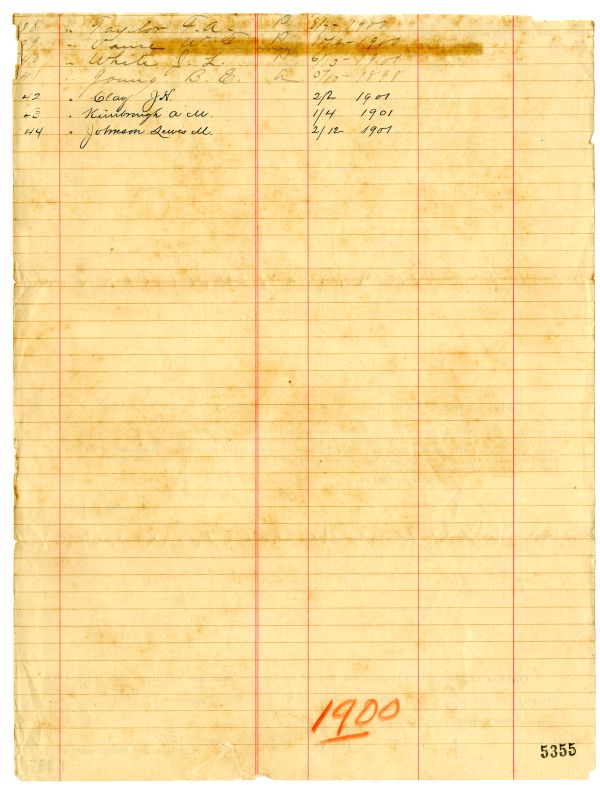 38 " Taylor F. A. P 8/9 - 1900
39 " W. F. P - 1900
40 " White J. L. P 6/15 - 1900
41 " Young B. E. A 5/15 - 1898
42 " Clay J. H. 2/2 1901
43 " Kimbrough A M. 1/4 1901
44 " Johnson Lewis M. 2/12 1901
1900
5355